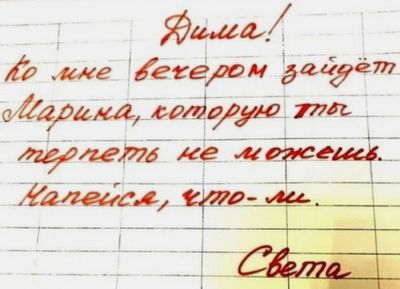 Дима!
Ко мне вечером зайдёт
Марина, которую ты
терпеть не можешь.
Напейся, что-ли.
Света